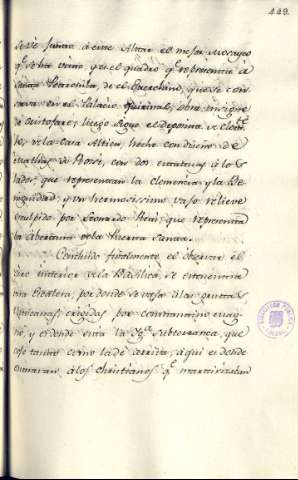 449.
se ve junto à este Altar el mejor Mosayco
qe. se ha visto, y es el quadro qe. representa à
Santa Petronila, de el Guerchino, que se con
serva en el Palacio Quirinal; obra insigne
de Cristofare; luego sigue el deposito de Cle
X, de la Casa Altieri, hecho con diseño de
Mathias de Rossi, con dos estatuas à los
lados, que representan la Clemencia, y la Be
nignidad; y un hermosissimo vaso relieve
esculpido por Leonardo Reti, que representa
la abertura de la Puerta Santa.
Concluido finalmente el observar el
giro interior de la Basilica, se encuentra
una Escalera, por donde se vaja à las grutas
Vaticanas erigidas por Constantino mag
no, y es donde esta la Yga. subterranea, que
coje tanto como la de arriba, aqui es donde
enterravan à los Christianos qe. martirizaban